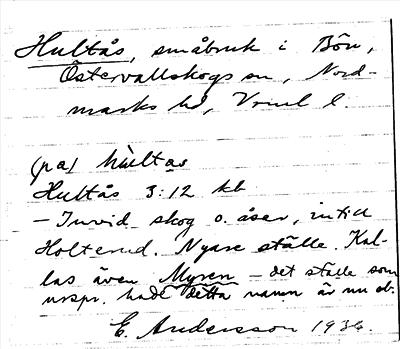 Hultås, småbruk i Bön,
Östervallskogs sn, Nord-
marks hd, Vrml l.
(pa) hùltas
Hultås 3:12 kb
– Invid skog o. åser, intill
Holterud. Nyare ställe. Kal-
las även Myren – det ställe som
urspr. hade detta namn är nu öb.
E. Andersson 1936.